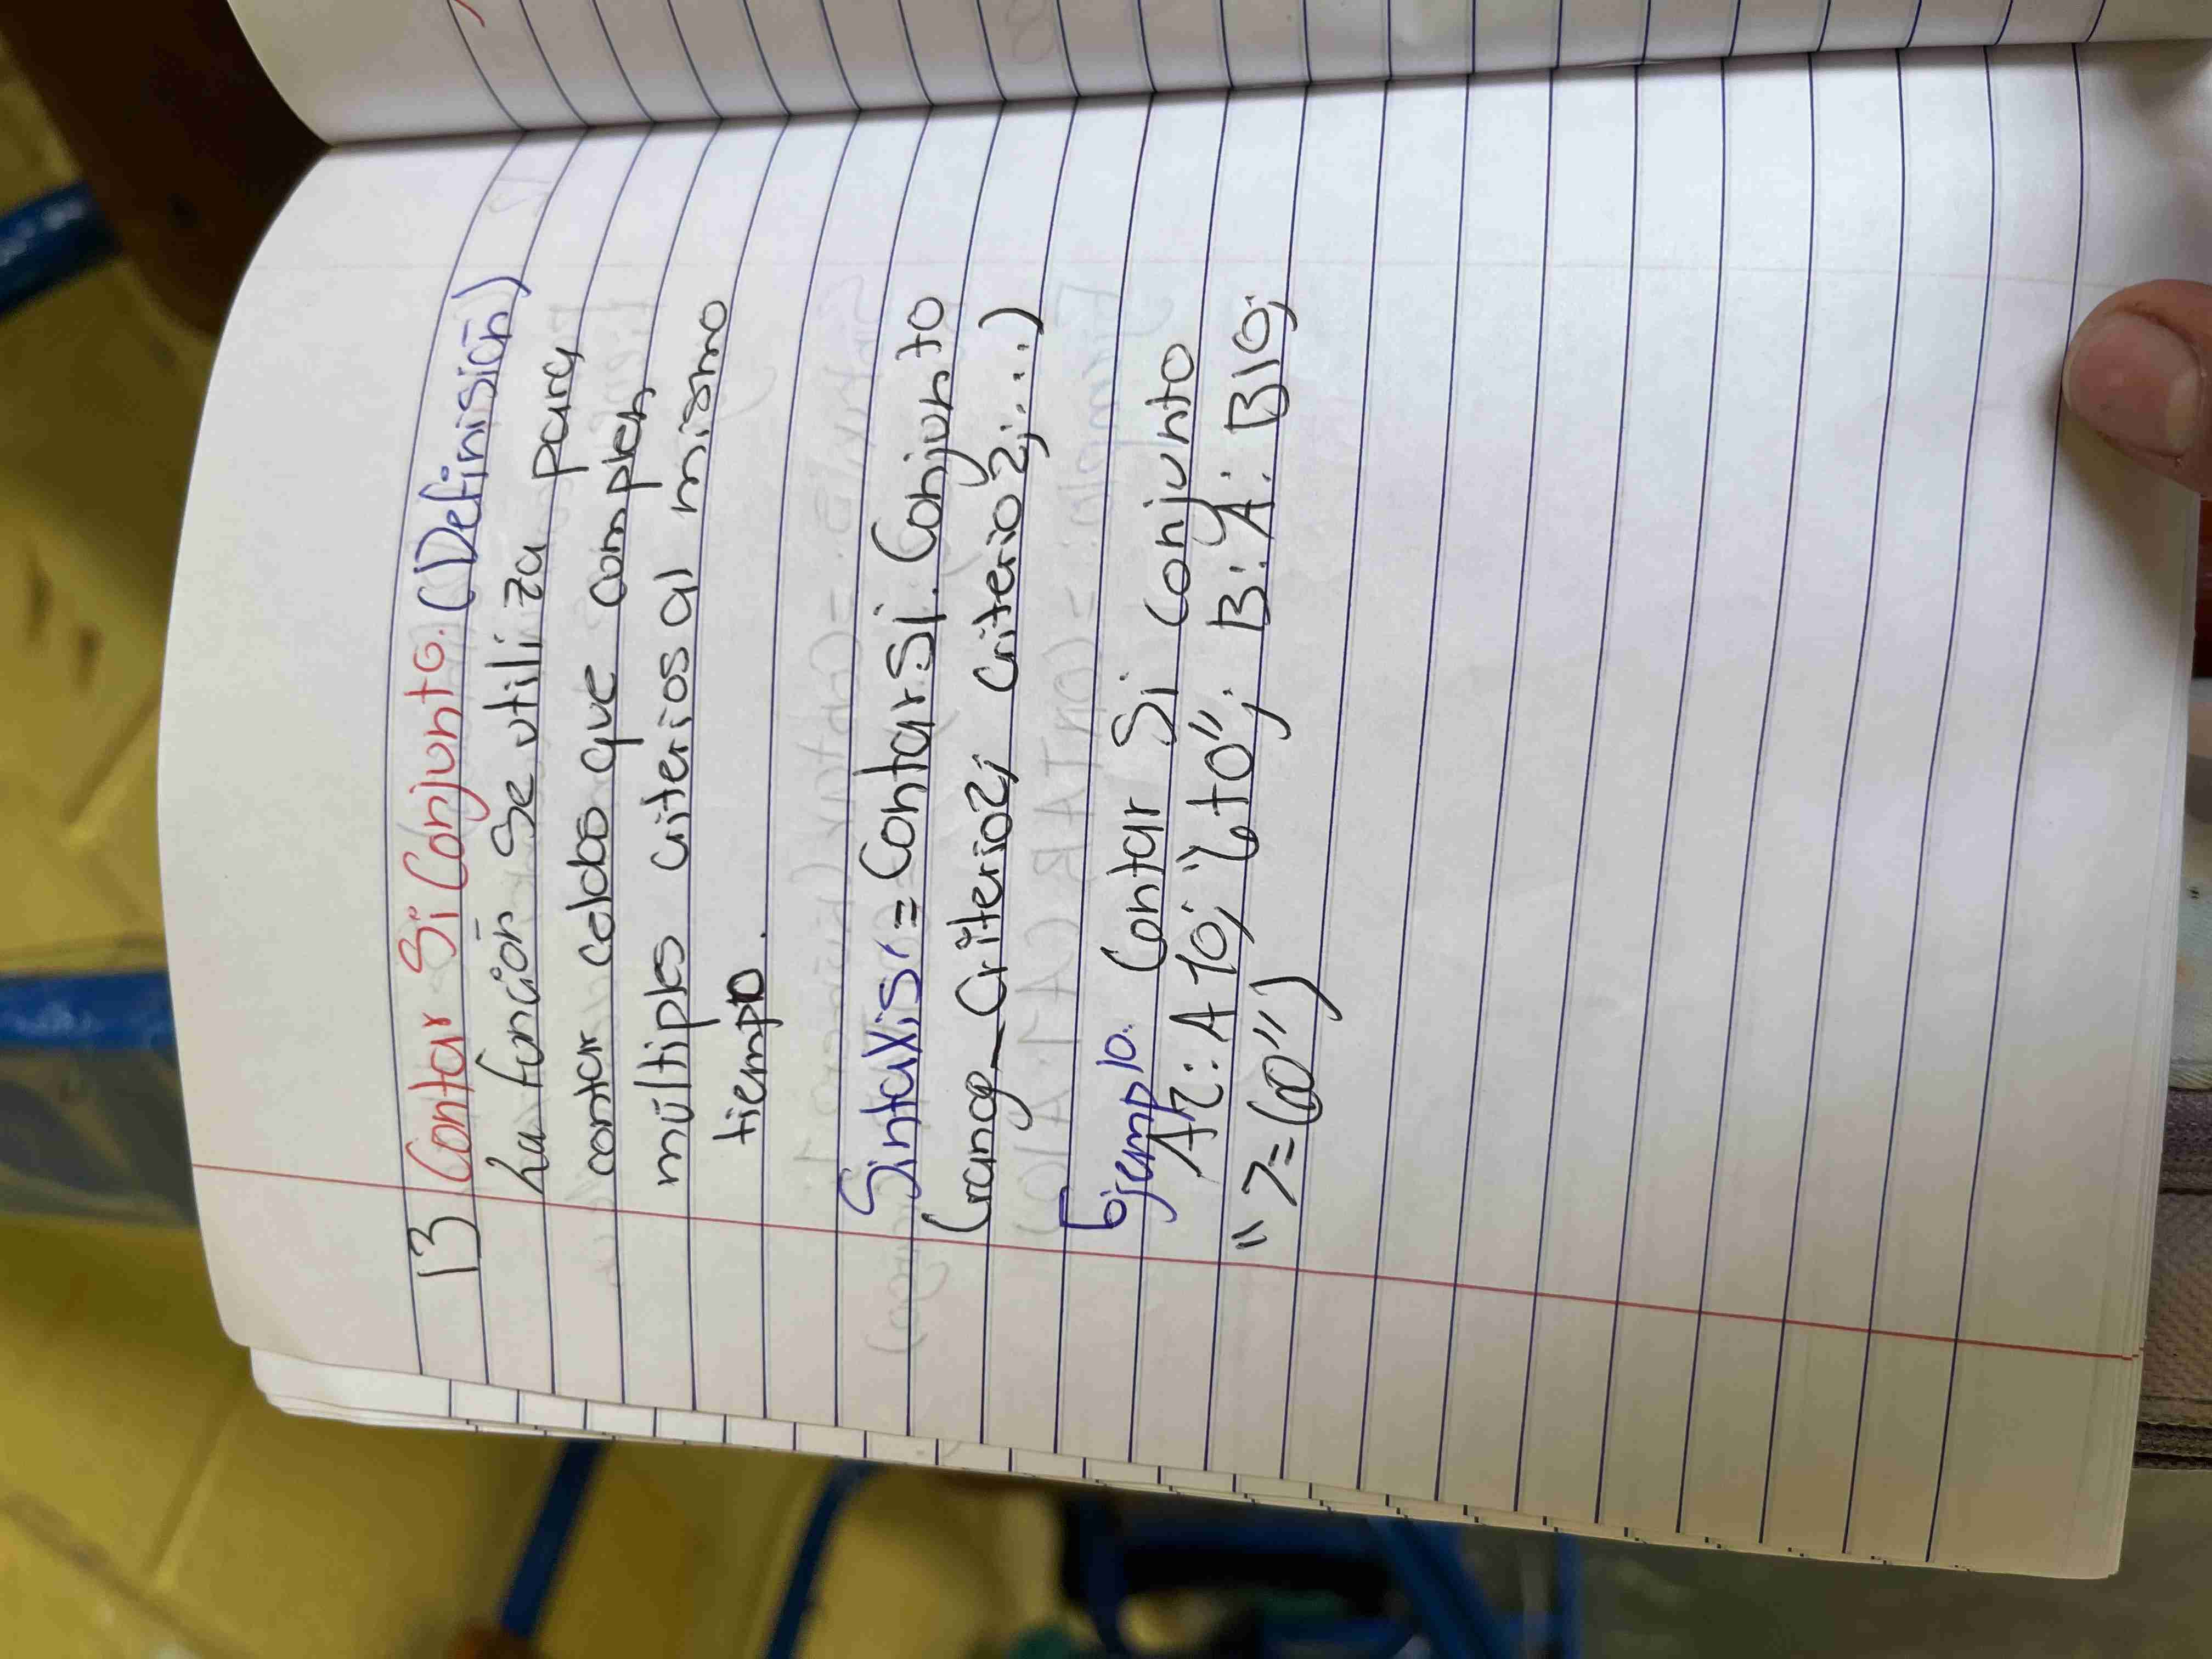 13 Contar Si Conjunto. (Definisión)
La función Se utiliza para
contar celdas que complen
múltiples criterios al mismo
tiempo.
Sintaxis: = Contar.Si. Conjunto
(rango_Criterio2; criterio2;...)
Ejemplo. Contar Si Conjunto
A2:A10; "6to"; B:A: B10;
">=60")